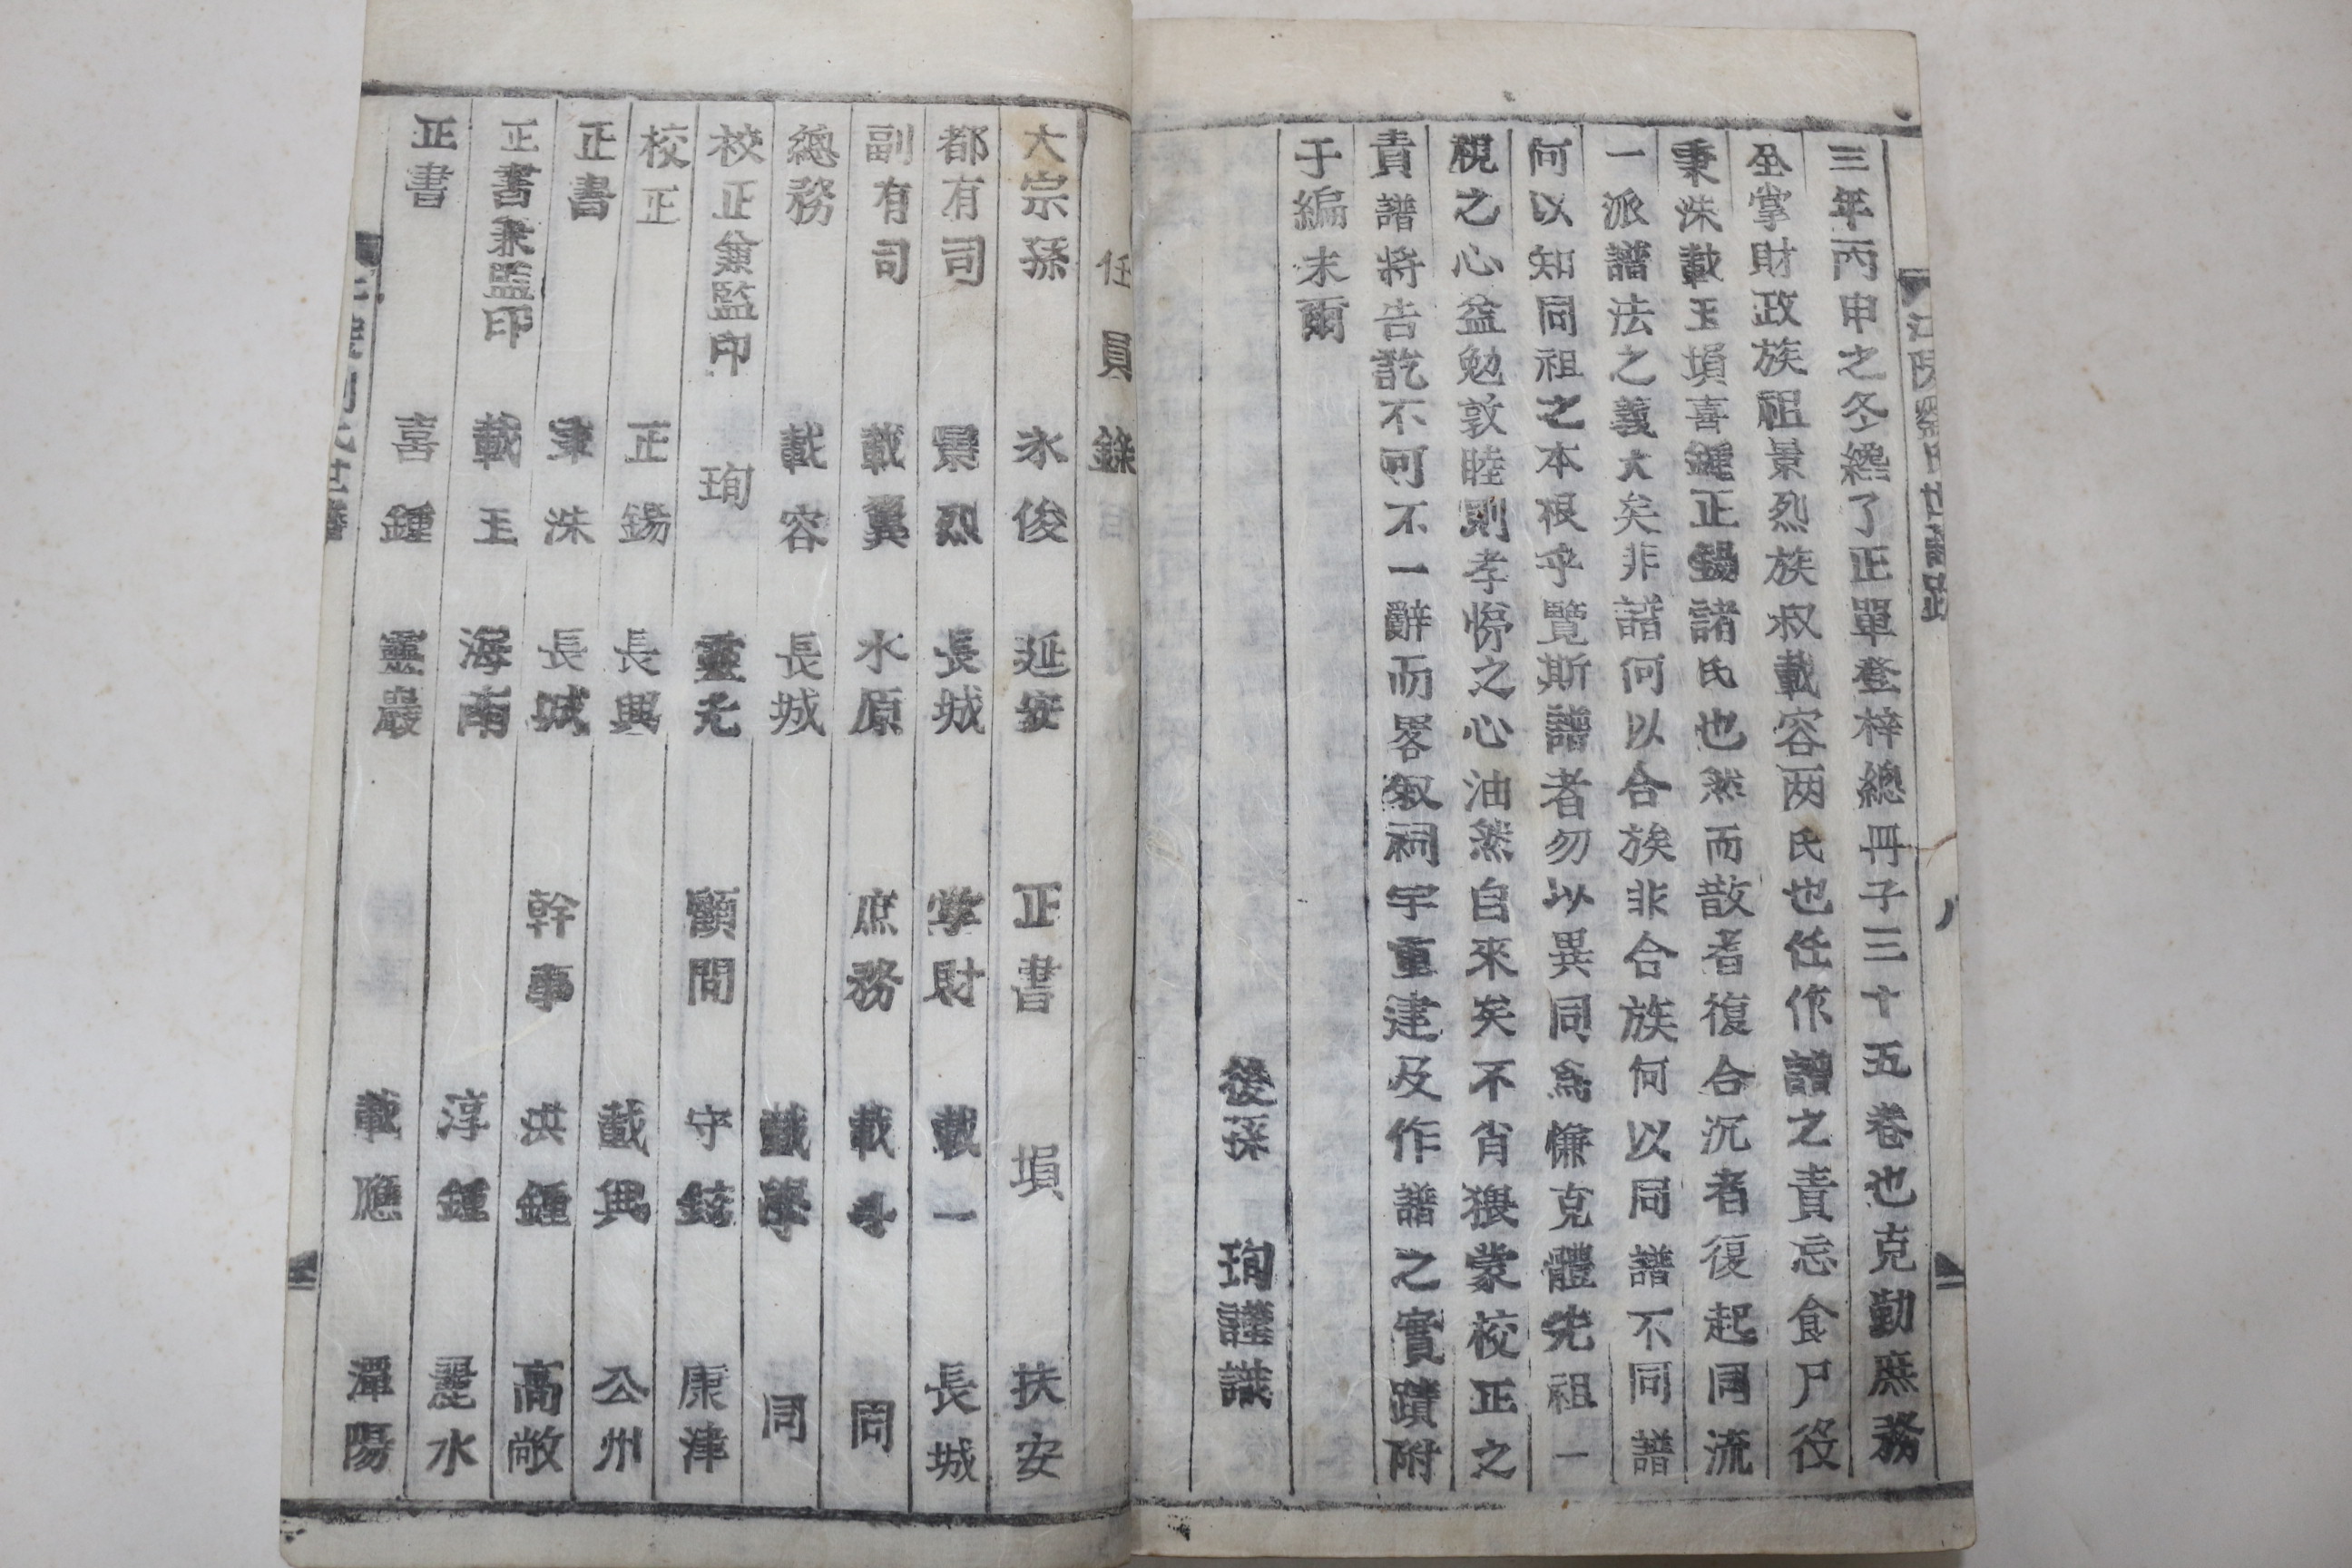 三年丙申之冬纔了正單登梓總冊子三十五卷也克勤庶務
全掌財政族祖景烈族叔載容两氏也任作譜之責忘食尸役
秉洙載玉塤喜鍾正錫諸氏也然而散者復合沉者復起同流
一派譜法之義大矣非譜何以合族非合族何以同譜不同譜
何以知同祖之本根乎覽斯譜者勿以異同為慊克體先祖一
視之心益勉敦睦則孝悌之心油然自來矣不肖猥蒙校正之
責譜將告訖不可不一辭而畧叙祠宇重建及作譜之實蹟附
于編末爾
後孫 珣謹識
任員錄
大宗孫 永俊 延安 正書 塤 扶安
都有司 景烈 長城 掌財 載一 長城
副有司 載翼 水原 庶務 載斗 同
總務 載容 長城 載學 同
校正兼監印 珣 靈光 顧問 守鉉 康津
校正 正錫 長興 載興 公州
正書 秉洙 長城 幹事 洪鍾 高敞
正書兼監印 載玉 海南 淳鍾 麗水
正書 喜鍾 靈巖 載應 潭陽